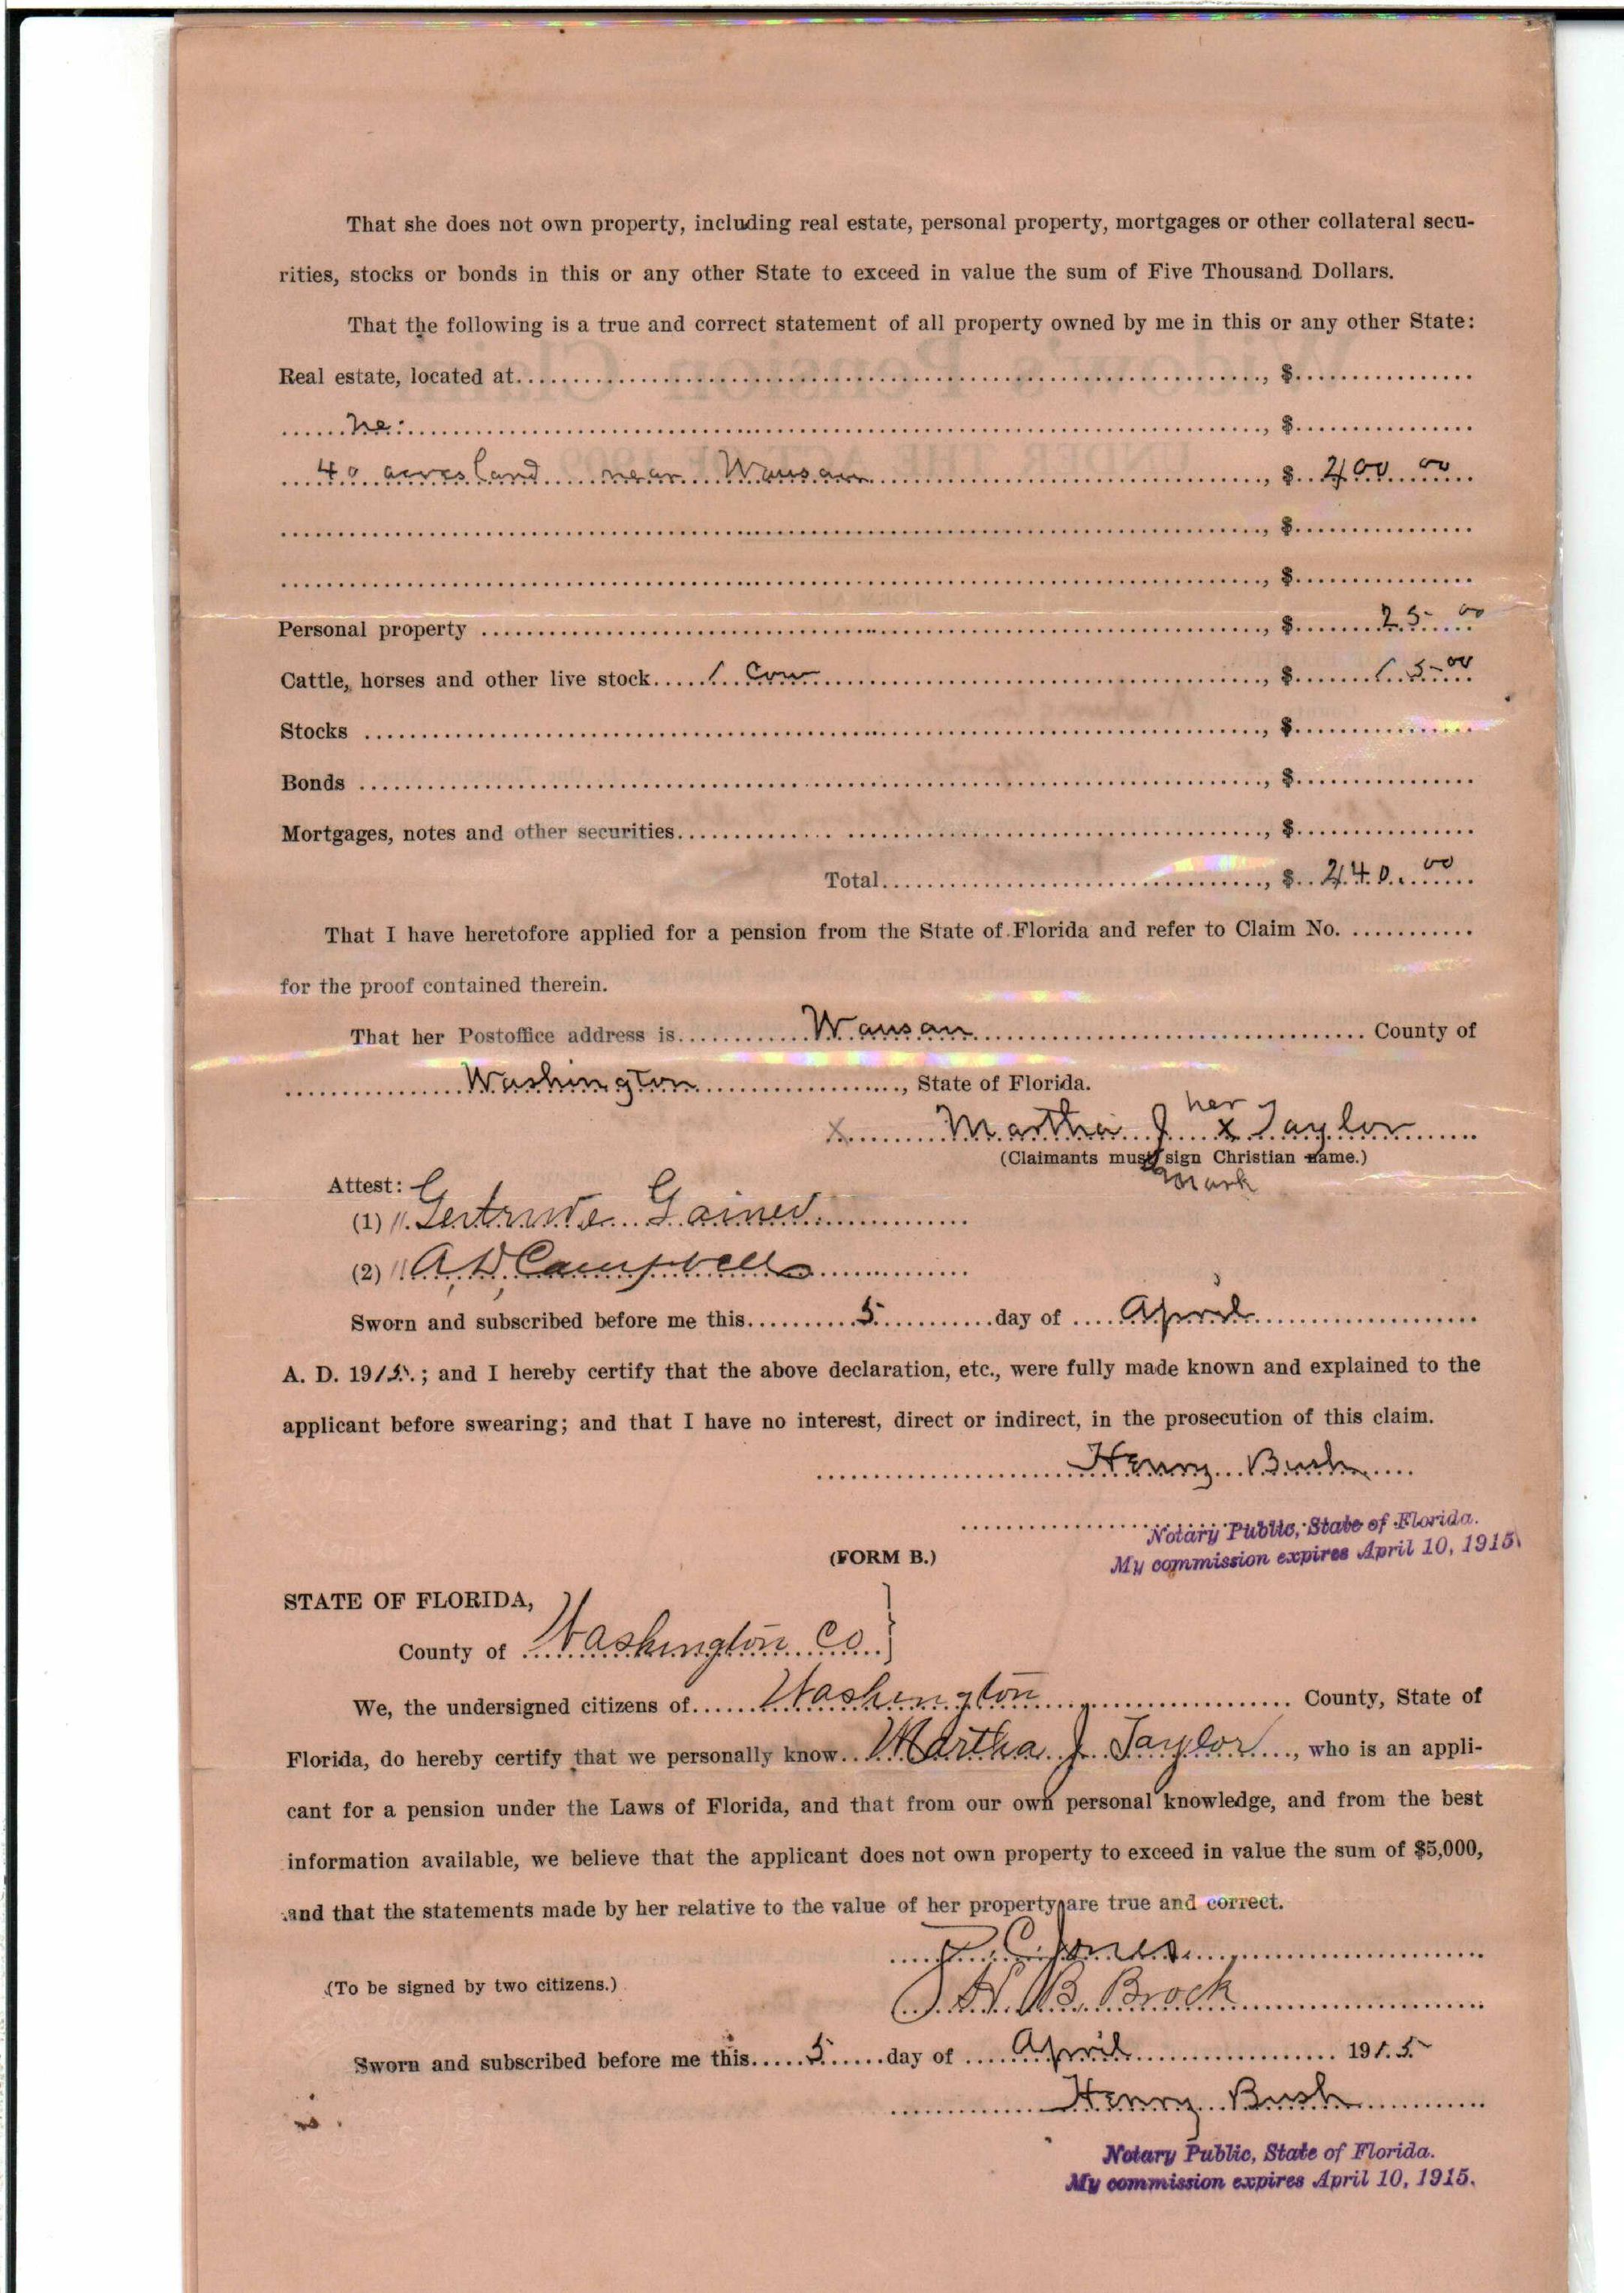 That she does not own property, including real estate, personal property, mortgages or other collateral secu-
rities, stocks or bonds in this or any other State to exceed in value the sum of Five Thousand Dollars.
That the following is a true and correct statement of all property owned by me in this or any other State:
Real estate, located at, $
ne:, $
40 acres land near Wausau, $ 200 00
, $
, $
Personal property, $ 25 00
Cattle, horses and other live stock 1 Cow, $ 15 00
Stocks, $
Bonds, $
Mortgages, notes and other securities, $
Total, $ 240 00
That I have heretofore applied for a pension from the State of Florida and refer to Claim No.
for the proof contained therein.
That her Postoffice address is Wausau County of
Washington, State of Florida.
her
x Martha J x Taylor
(Claimants must sign Christian name.)
mark
Attest:
(1) Gertrude Gainer
(2) A, D, Campbell
Sworn and subscribed before me this 5 day of April
A. D. 1915; and I hereby certify that the above declaration, etc., were fully made known and explained to the
applicant before swearing; and that I have no interest, direct or indirect, in the prosecution of this claim.
Henry Bush
Notary Public, State of Florida.
My commission expires April 10, 1915.
(FORM B.)
STATE OF FLORIDA,
County of Washington Co }
We, the undersigned citizens of Washington County, State of
Florida, do hereby certify that we personally know Martha J Taylor, who is an appli-
cant for a pension under the Laws of Florida, and that from our own personal knowledge, and from the best
information available, we believe that the applicant does not own property to exceed in value the sum of $5,000,
and that the statements made by her relative to the value of her property are true and correct.
C. Jones
(To be signed by two citizens.)
H. B. Brock
Sworn and subscribed before me this 5 day of April 1915
Henry Bush
Notary Public, State of Florida.
My commission expires April 10, 1915.